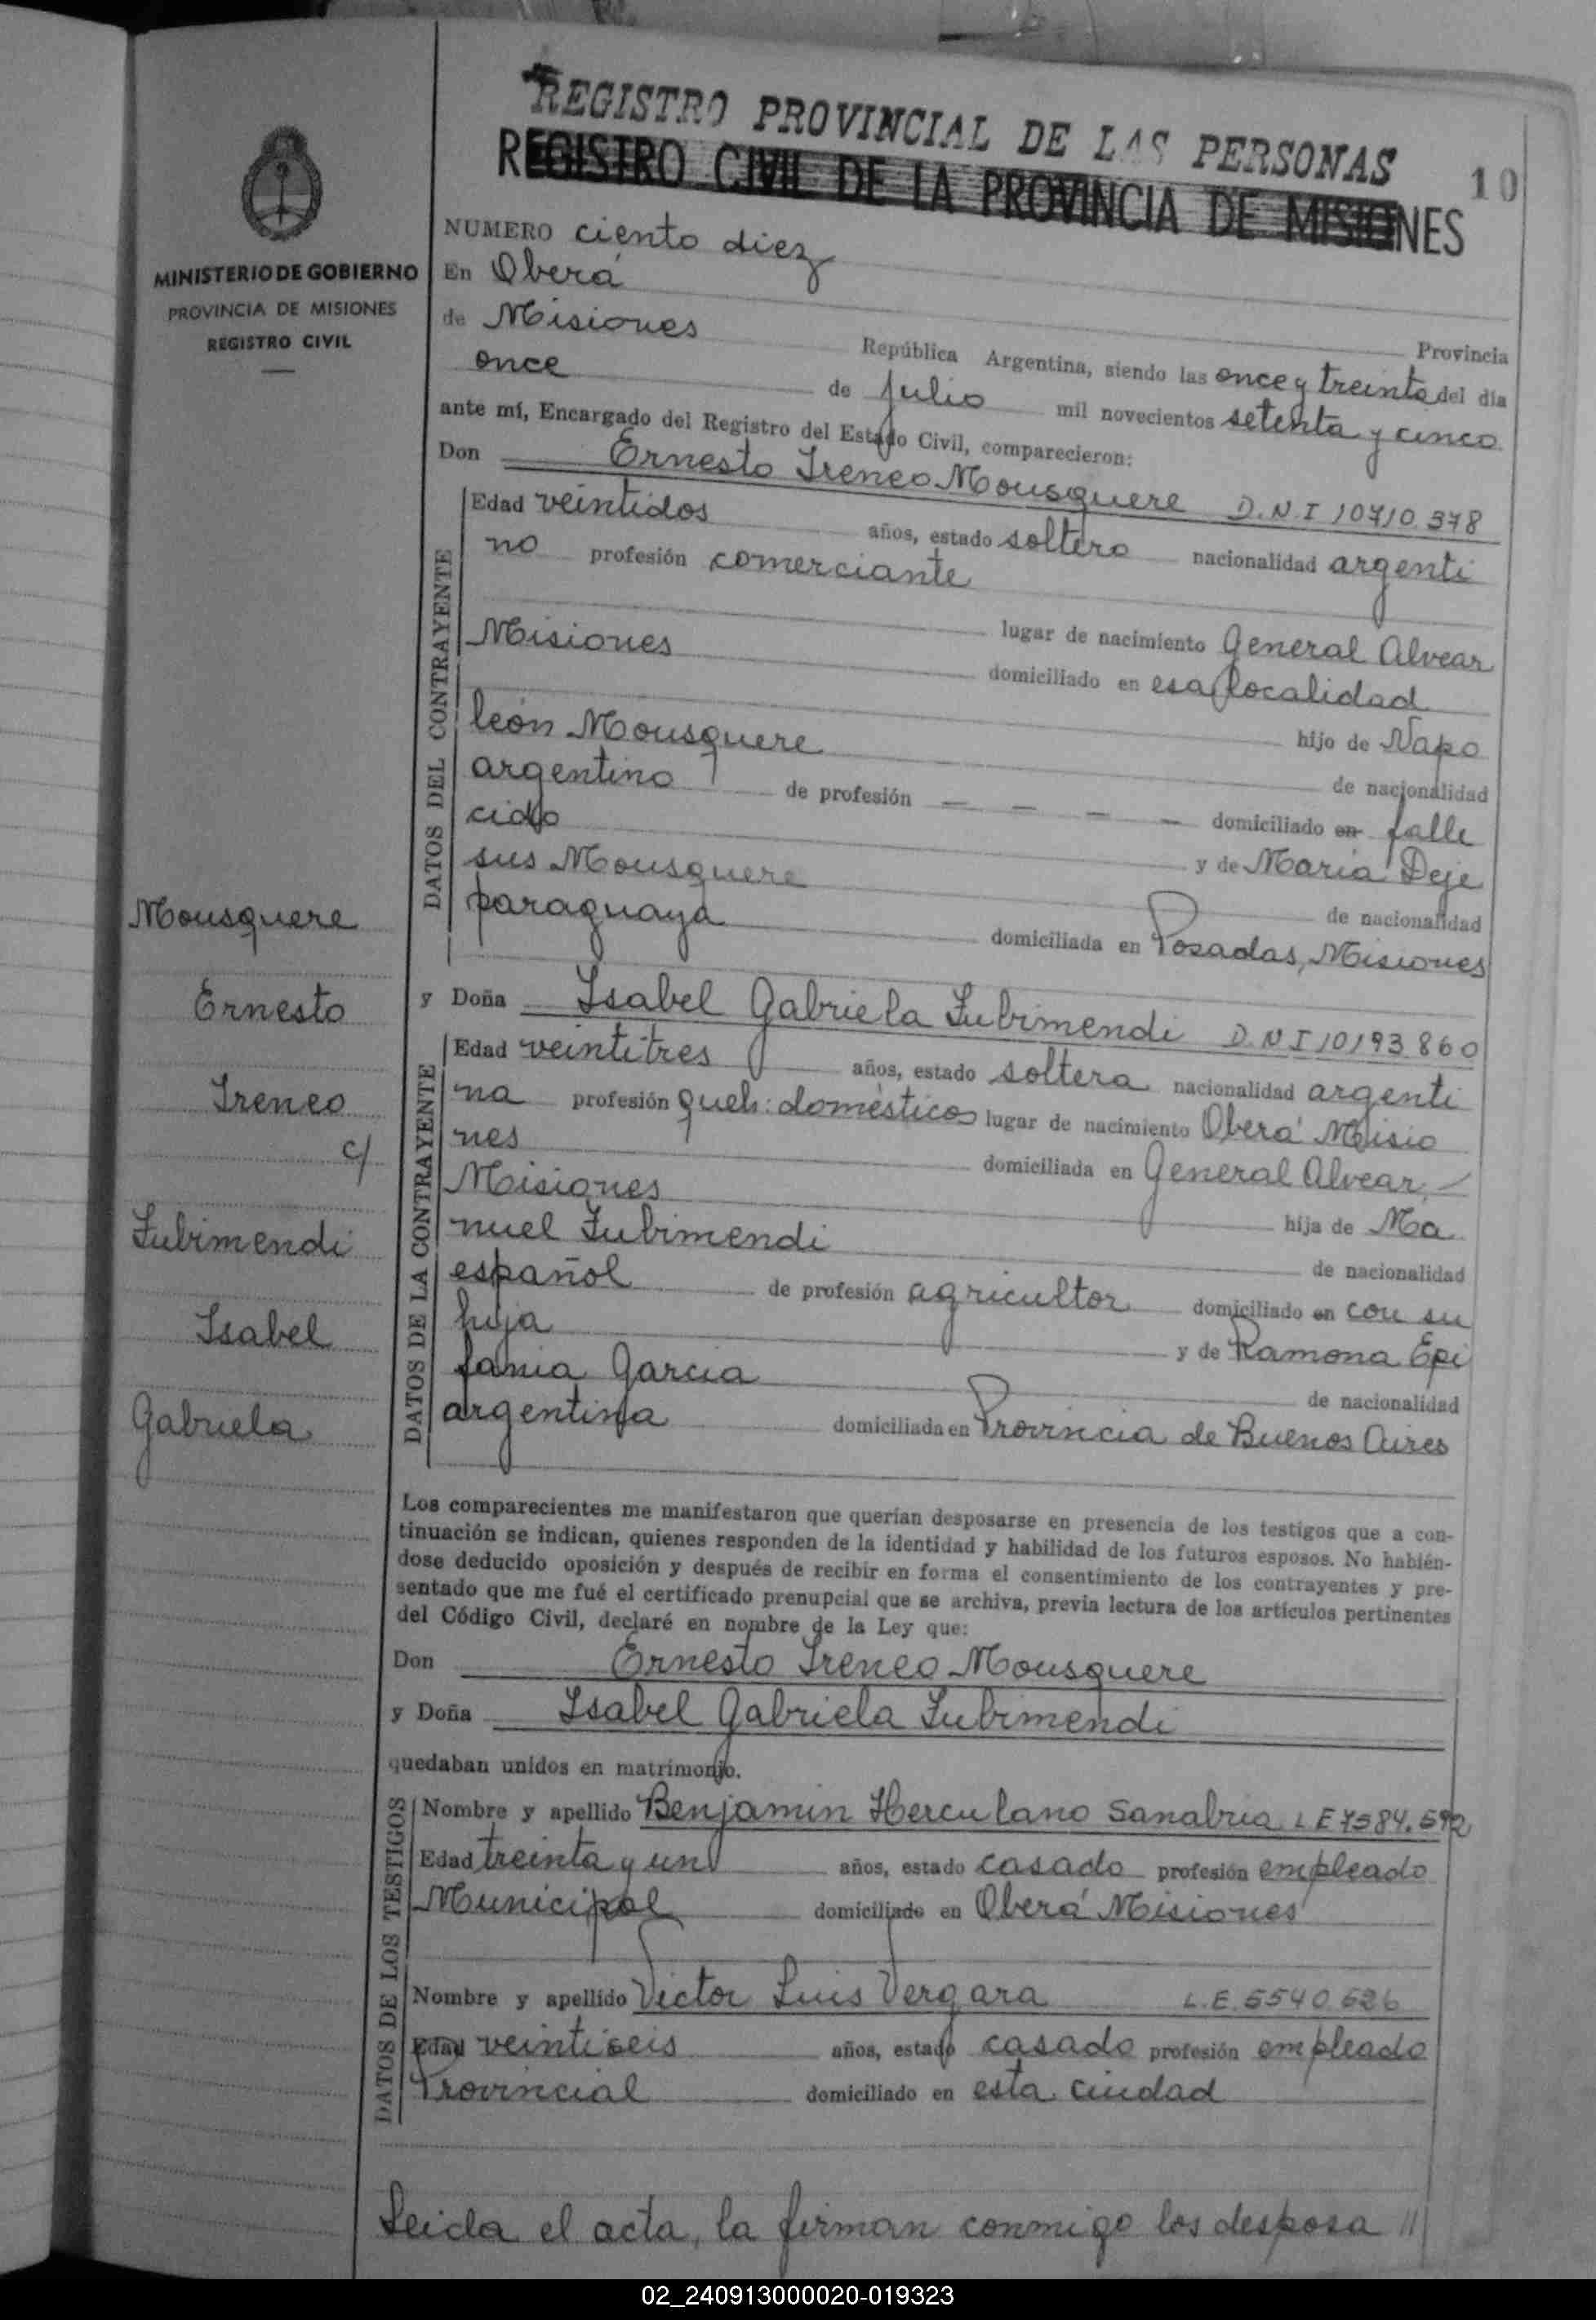 REGISTRO PROVINCIAL DE LAS PERSONAS
REGISTRO CIVIL DE LA PROVINCIA DE MISIONES
10
MINISTERIO DE GOBIERNO
PROVINCIA DE MISIONES
REGISTRO CIVIL
NUMERO ciento diez
En Oberá Provincia
de Misiones República Argentina, siendo las once y treinta del día
once de julio mil novecientos setenta y cinco
ante mí, Encargado del Registro del Estado Civil, comparecieron:
Don Ernesto Ireneo Mousquere D.N.I 10710.378
DATOS DEL CONTRAYENTE
Edad veintidos años, estado soltero nacionalidad argenti
no profesión comerciante
lugar de nacimiento General Alvear
Misiones domiciliado en esa localidad
hijo de Napo
león Mousquere de nacionalidad
argentino de profesión — — — — domiciliado en falle
cido y de Maria Deje
sus Mousquere de nacionalidad
paraguaya domiciliada en Posadas, Misiones
y Doña Isabel Gabriela Zubimendi D.N.I 10193.860
DATOS DE LA CONTRAYENTE
Edad veintitres años, estado soltera nacionalidad argenti
na profesión queh: domésticos lugar de nacimiento Oberá Misio
nes domiciliada en General Alvear,
Misiones hija de Ma
nuel Zubimendi de nacionalidad
español de profesión agricultor domiciliado en con su
hija y de Ramona Epi
fania Garcia de nacionalidad
argentina domiciliada en Provincia de Buenos Aires
Mousquere
Ernesto
Ireneo
c/
Zubimendi
Isabel
Gabriela
Los comparecientes me manifestaron que querían desposarse en presencia de los testigos que a con-
tinuación se indican, quienes responden de la identidad y habilidad de los futuros esposos. No habién-
dose deducido oposición y después de recibir en forma el consentimiento de los contrayentes y pre-
sentado que me fué el certificado prenupcial que se archiva, previa lectura de los artículos pertinentes
del Código Civil, declaré en nombre de la Ley que:
Don Ernesto Ireneo Mousquere
y Doña Isabel Gabriela Zubimendi
quedaban unidos en matrimonio.
DATOS DE LOS TESTIGOS
Nombre y apellido Benjamin Herculano Sanabria L E 7584.592
Edad treinta y un años, estado casado profesión empleado
Municipal domiciliado en Oberá Misiones
Nombre y apellido Victor Luis Vergara L.E. 5540.626
Edad veintiseis años, estado casado profesión empleado
Provincial domiciliado en esta ciudad
Leida el acta, la firman conmigo los desposa //
02_240913000020-019323